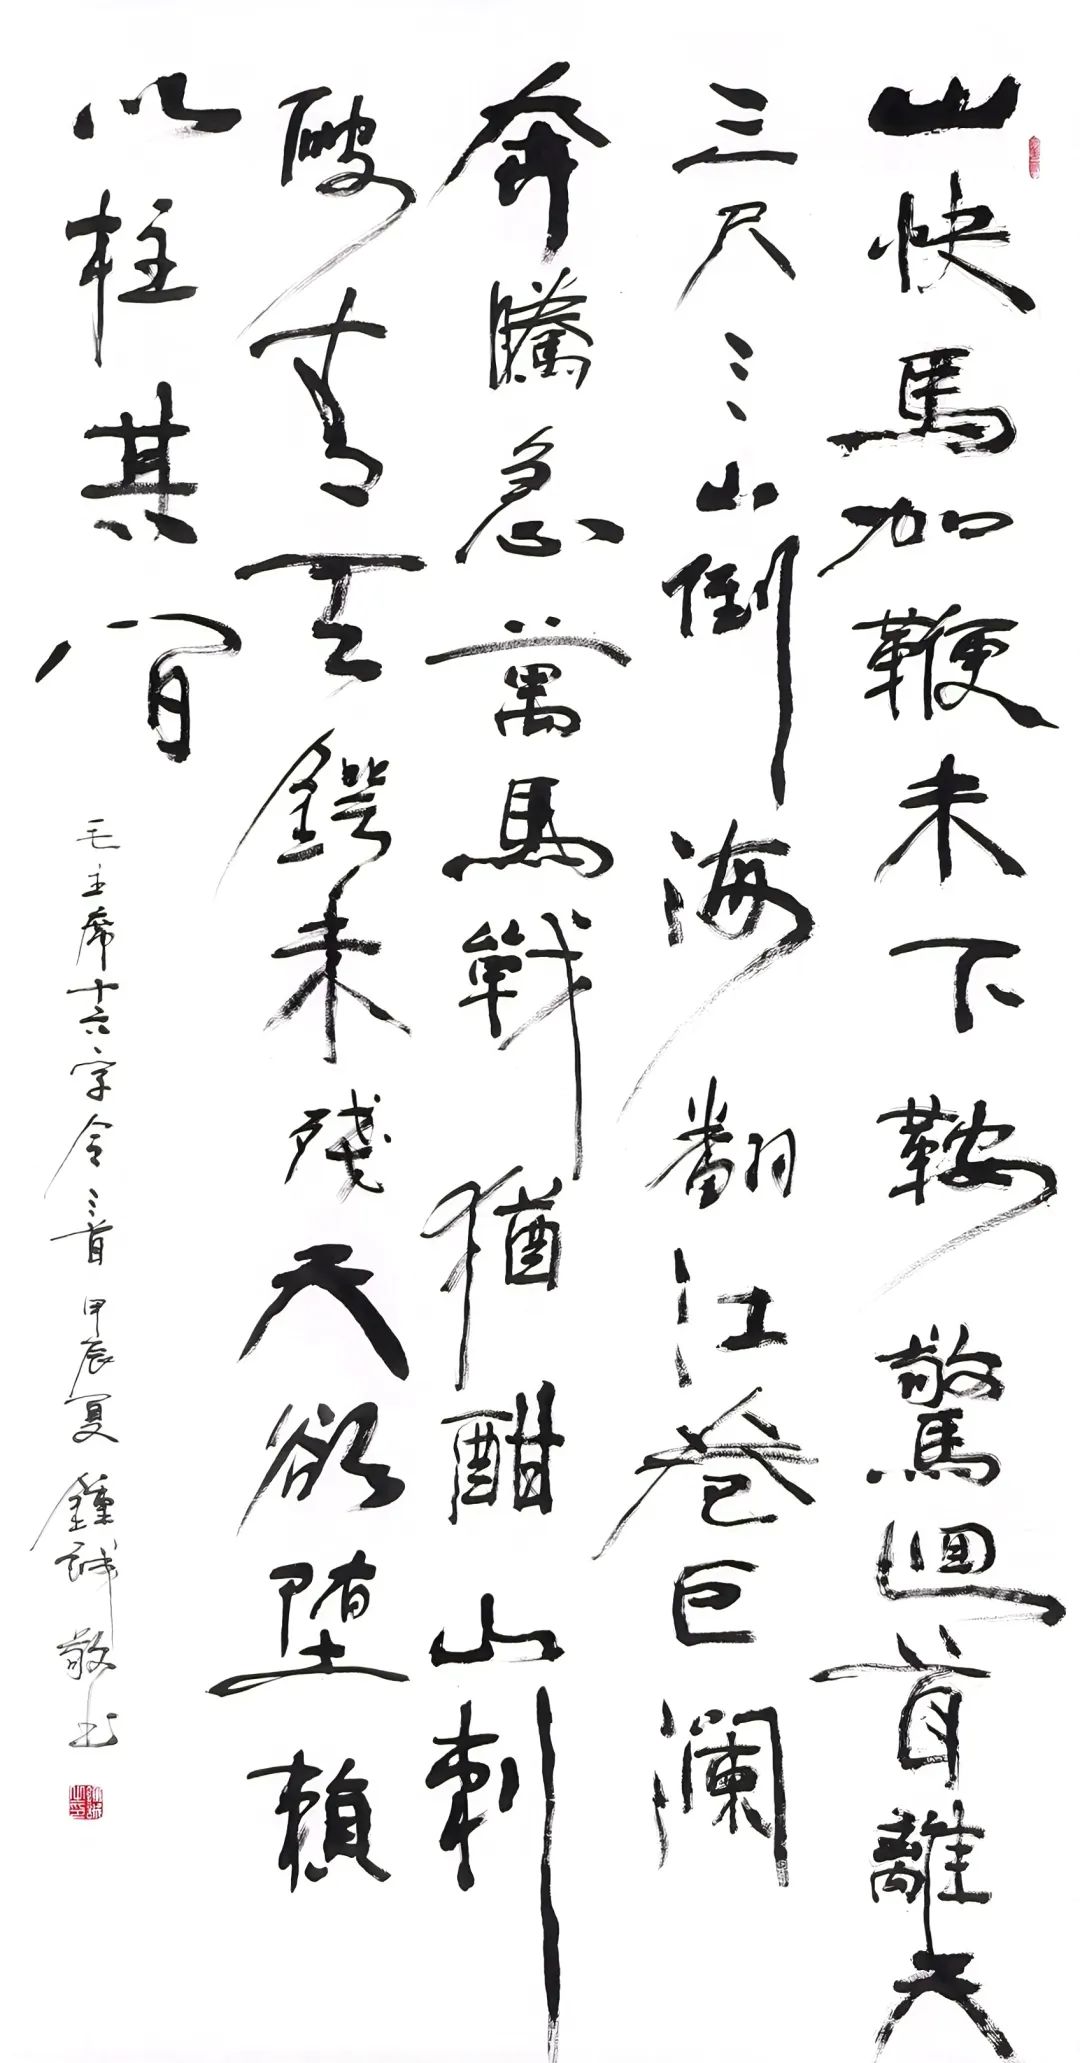 山快馬加鞭未下鞍驚迴首離天
三尺三山倒海翻江卷巨澜
奔騰急萬馬戰猶酣山刺
破青天鍔未殘天欲墮賴
以柱其間
毛主席十六字令三首 甲辰夏 鍾誠敬书